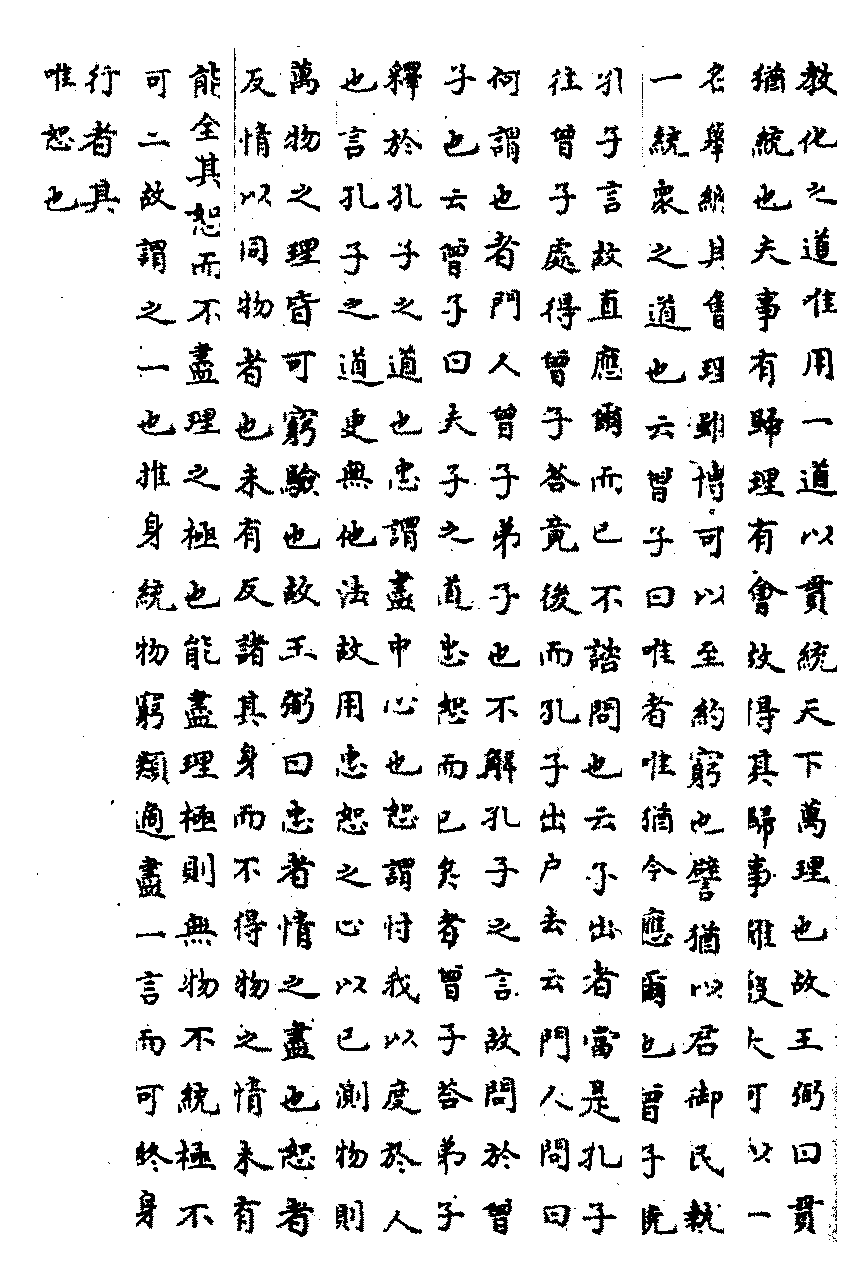 教化之道唯用一道以貫統天下萬理也故王弼曰貫
猶統也夫事有歸理有會故得其歸事雖殷大可以一
名舉總其會理雖博可以至約窮也譬猶以君御民執
一統衆之道也云曾子曰唯者唯猶今應爾也曾子曉
孔子言故直應爾而已不諮問也云子出者當是孔子
往曾子處得曾子答竟後而孔子出户去云門人問曰
何謂也者門人曾子弟子也不解孔子之言故問於曾
子也云曾子曰夫子之道忠恕而已矣者曾子答弟子
釋於孔子之道也忠謂盡中心也恕謂忖我以度於人
也言孔子之道更無他法故用忠恕之心以已測物則
萬物之理皆可窮驗也故王弼曰忠者情之盡也恕者
反情以同物者也未有反諸其身而不得物之情未有
能全其恕而不盡理之極也能盡理極則無物不統極不
可二故謂之一也推身統物窮類適盡一言而可終身
行者其
唯恕也